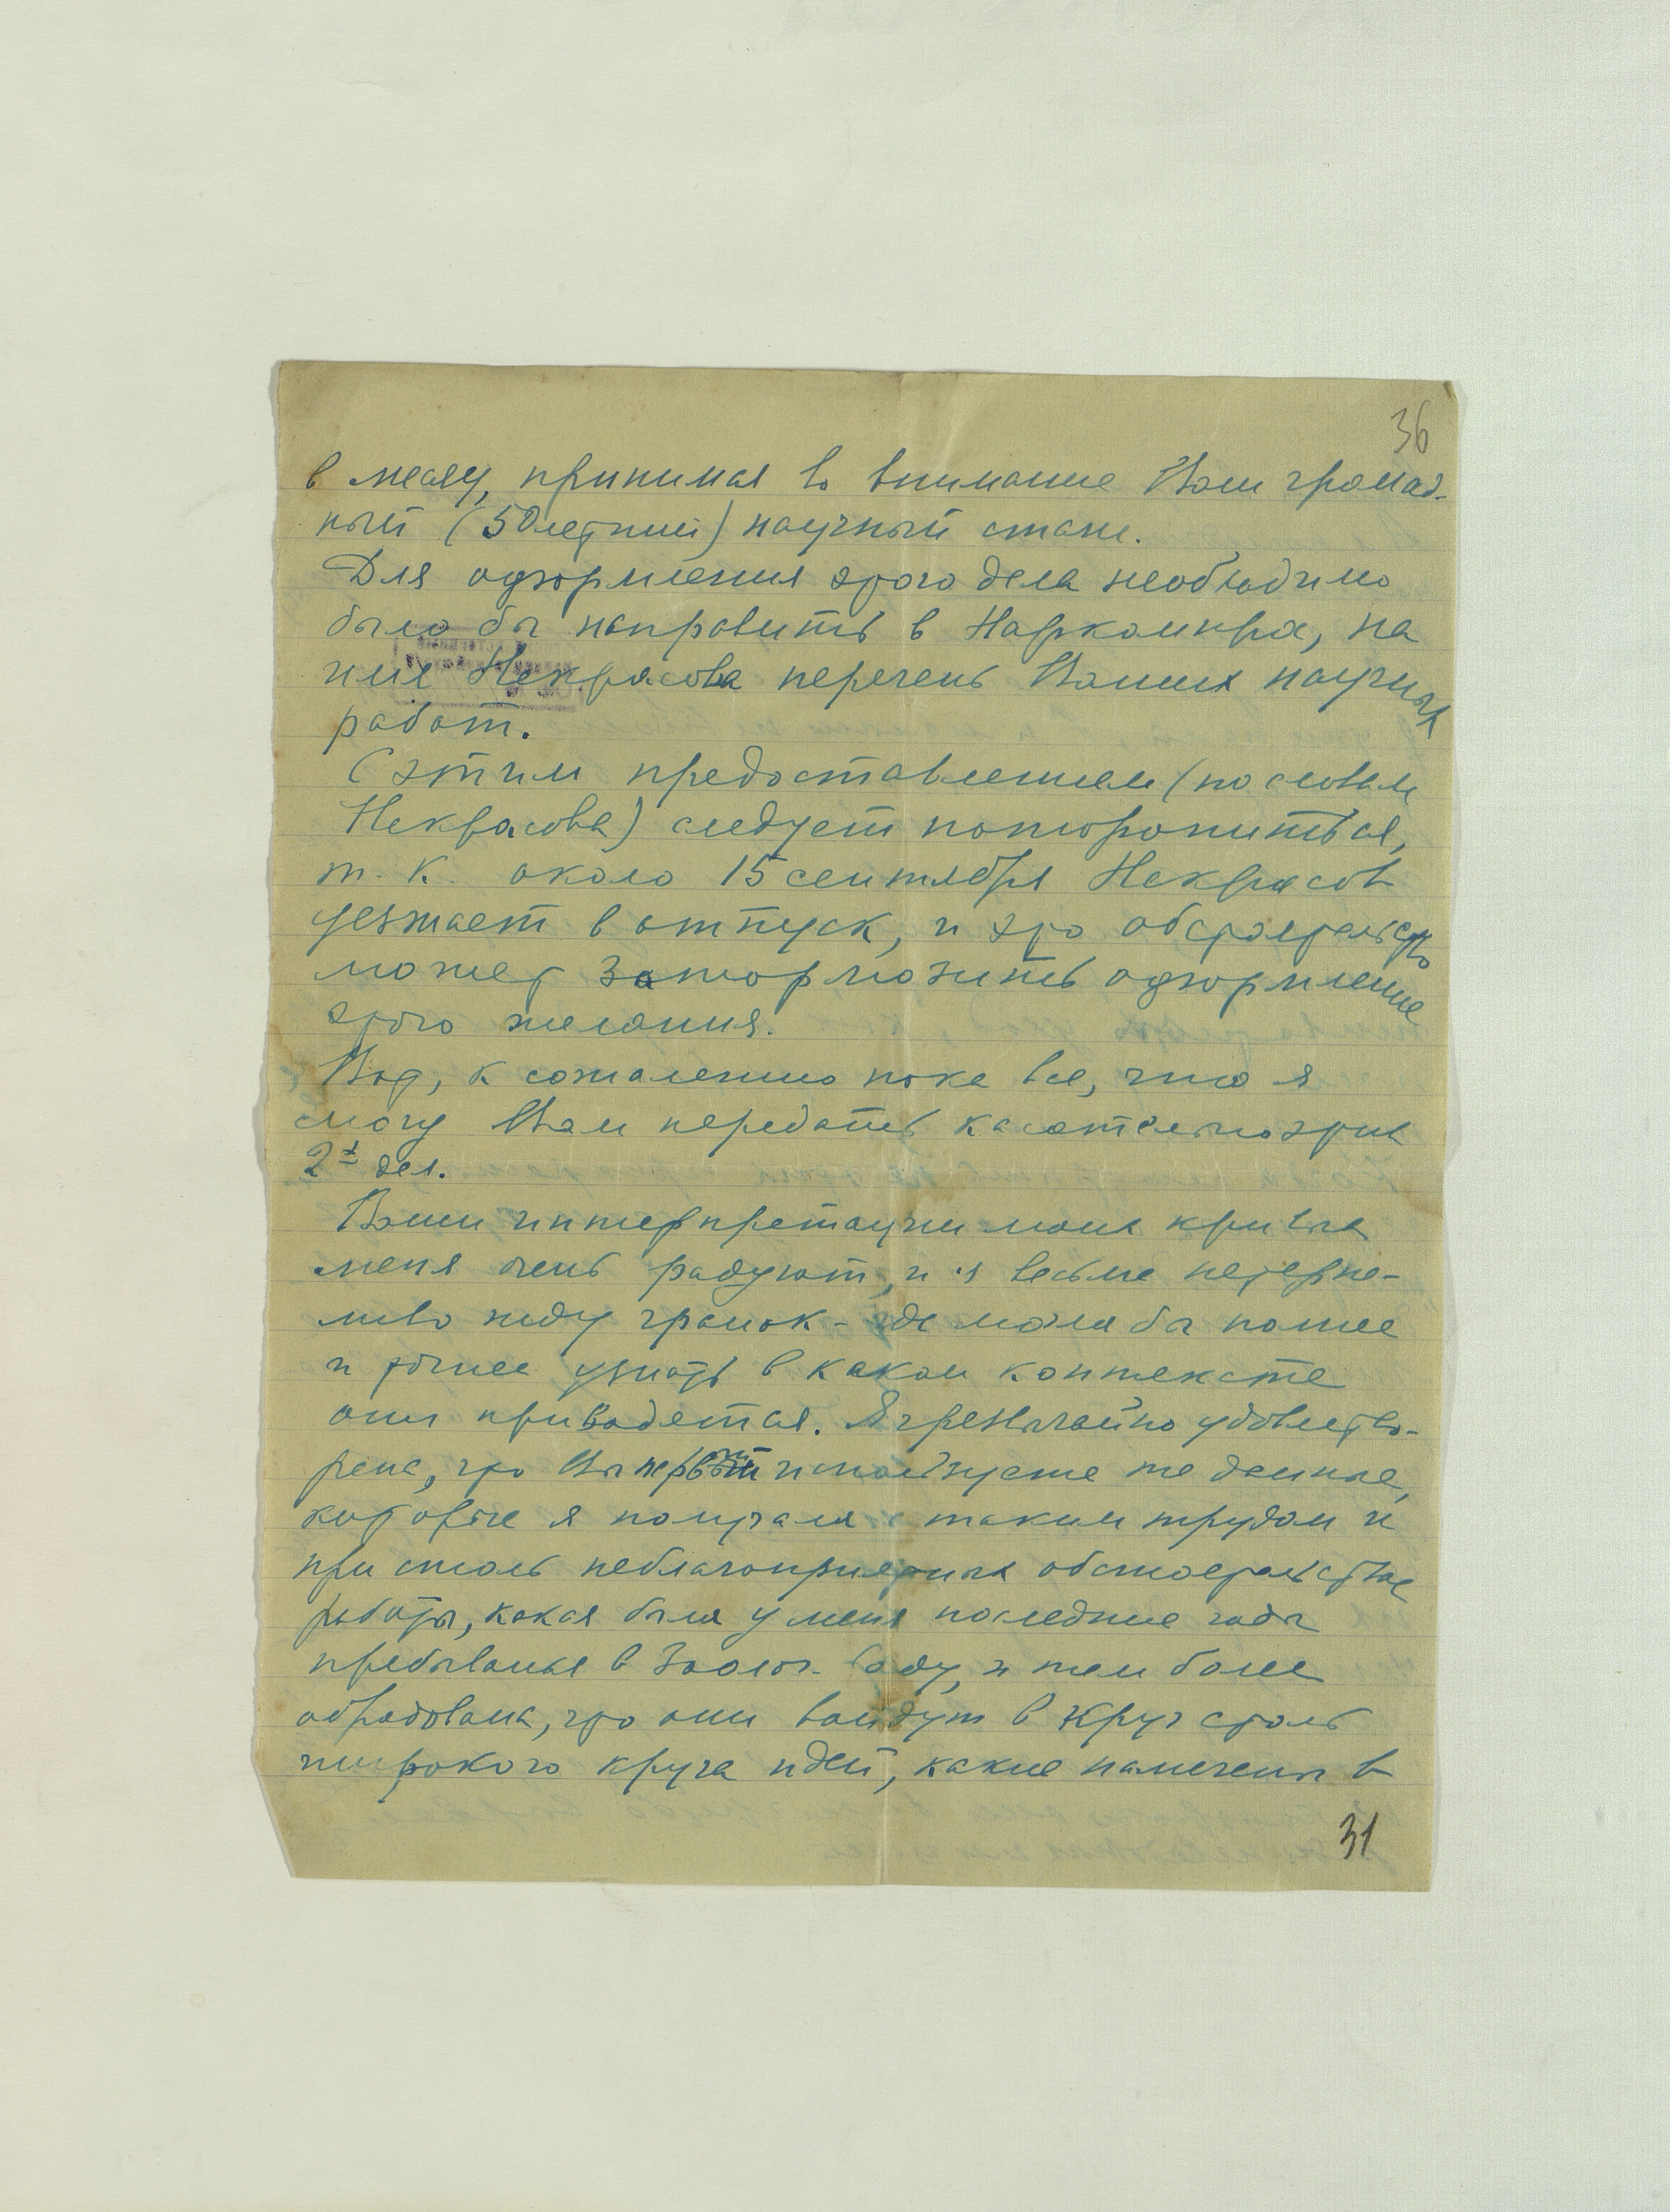 36
в месяц, принимая во внимание Ваш громад-
ный (50летний) научный стаж.
Для оформления этого дела необходимо
было бы направить в Наркомпрос, на
имя Некрасова перечень Ваших научных
работ.
С этим предоставлением (по словам
Некрасова) следует поторопиться,
т. к. около 15 сентября Некрасов
уезжает в отпуск, и это обстоятельство
может затормозить оформление
этого желания.
Вот, к сожалению пока все, что я
могу Вам передать касательно этих
2х дел.
Ваши интерпретации моих кривых
меня очень радуют, и я весьма нетерпе-
ливо жду гранок - где могла бы полнее
и точнее узнать в каком контексте
они приводятся. Я чрезвычайно удовлетво-
рена, что Вы первый используете те данные,
которые я получала с таким трудом и
при столь неблагоприятных обстоятельствах
работы, какая была у меня последние годы
пребыванья в Зоолог. Саду, и тем более
обрадована, что они войдут в круг столь
широкого круга идей, какие намечены в
31